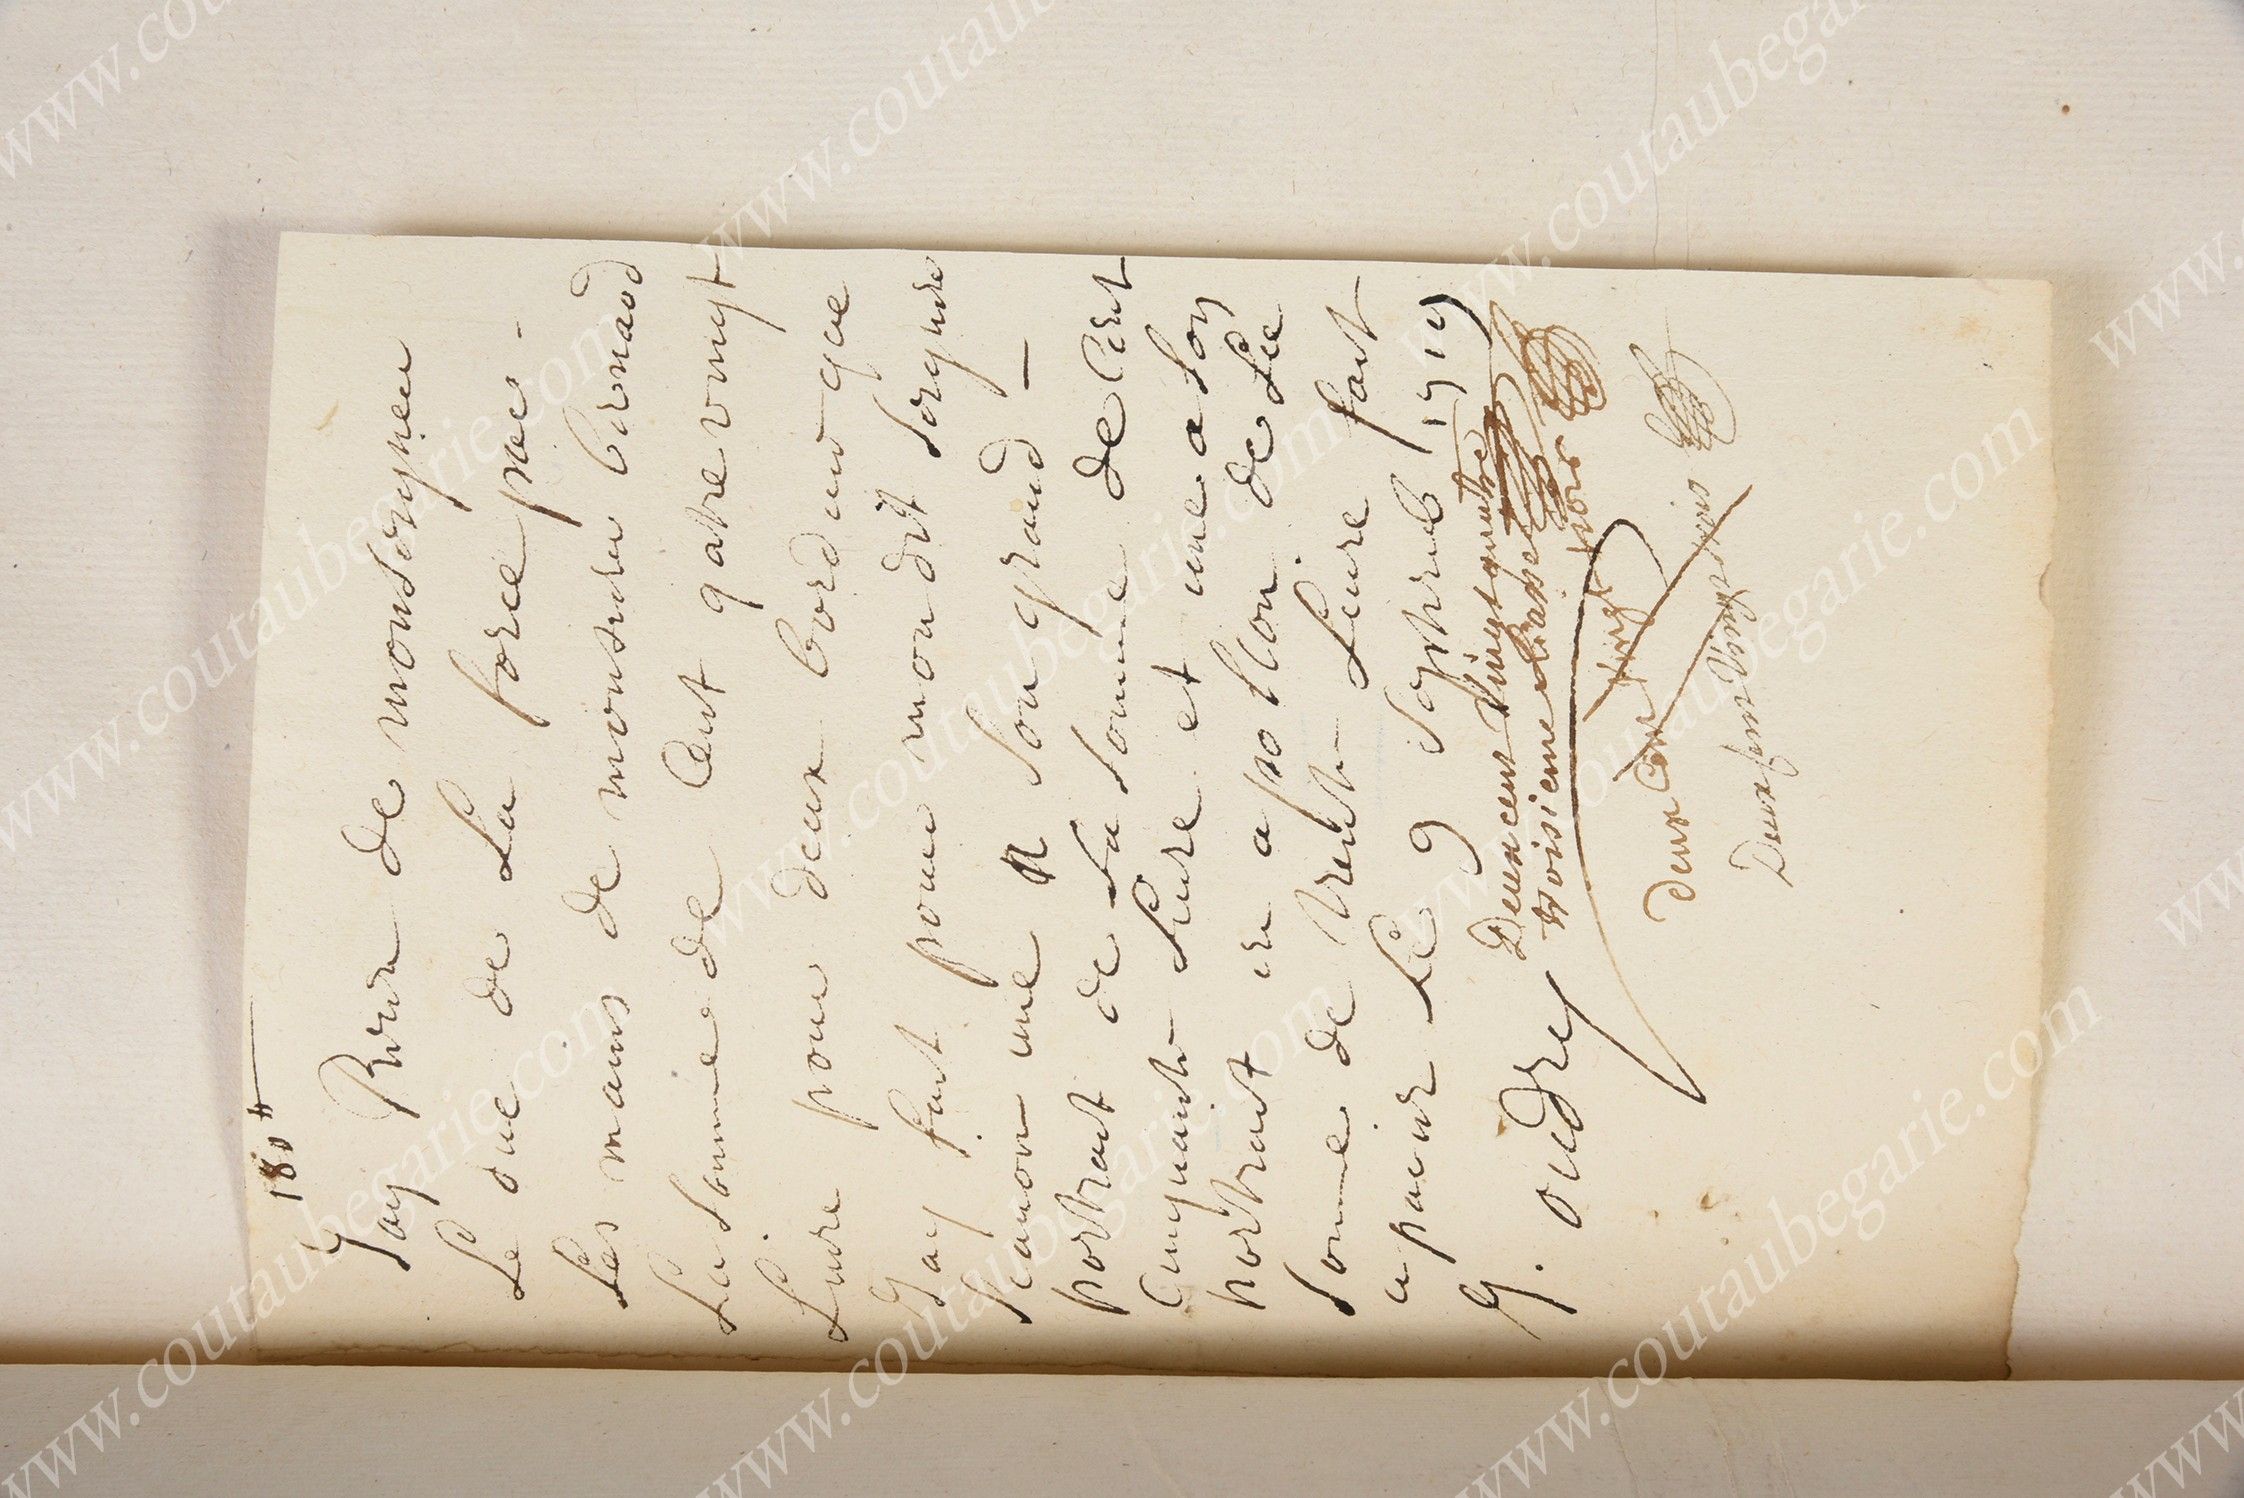 180 ₶
Jay Recu de monsegneu
Le duc de La force par
Les mains de monsieu bernard
La Somme de Cent quatre vingt
Livre pour deux bordure que
Jay fait pour mondit segneur
Scavoir une Son grand
portrait de La Somme de Cent
Cinquante Livre et une a Son
portrait en apollon de La
Somme de trente Livre fait
a paris Le 9 Septreb 1719
G. oudry
Deux cent Vingt quatre
troisieme Liasse
Deux Cent Vingt trois
Deux Cent Vingt trois
www.coutaubegarie.com